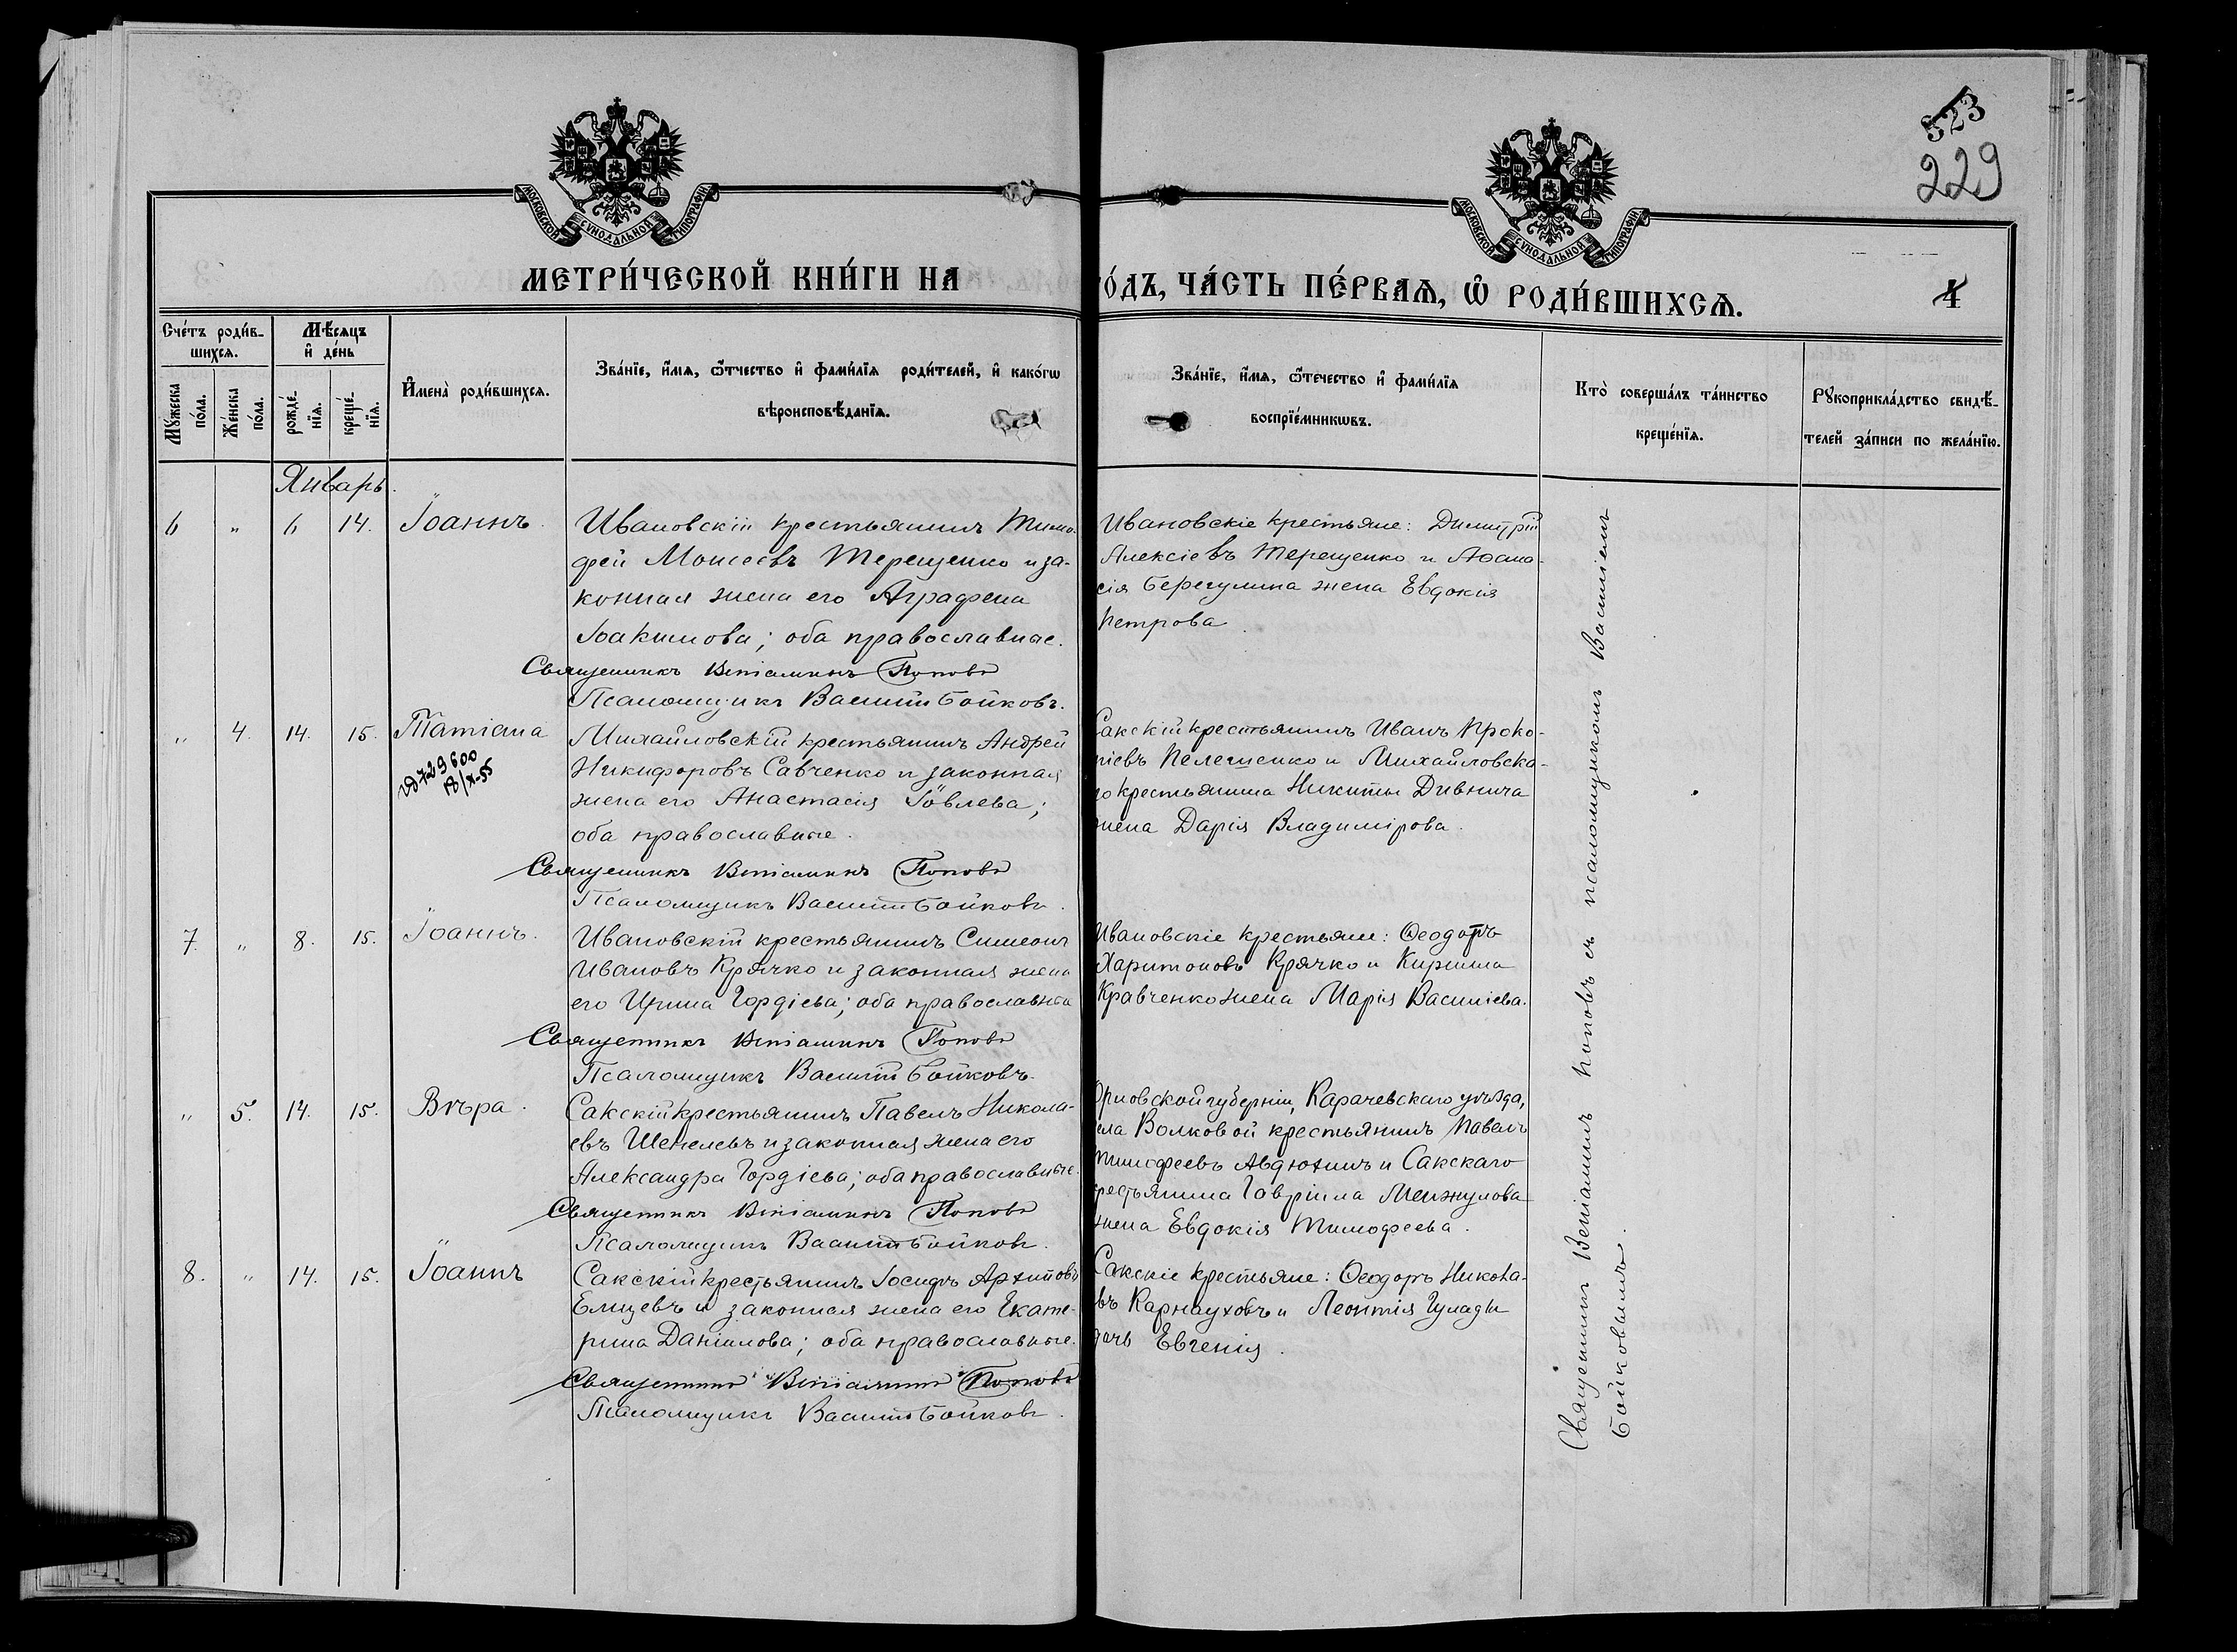 523
229
МОСКОВСКОЙ СѴНОДАЛЬНОЙ ТИПОГРАФІИ
МОСКОВСКОЙ СѴНОДАЛЬНОЙ ТИПОГРАФІИ
МЕТРИ́ЧЕСКОЙ КНИ́ГИ НА
ГО́ДЪ, ЧА́СТЬ ПЕ́РВАѦ, Ѽ РОДИ́ВШИХСѦ.
4
Сче́тъ роди́в-
шихсѧ.
Мꙋжеска по́ла.
Же́нска по́ла.
Мѣ́сѧцъ
и҆ де́нь
рожде́-
нїѧ.
креще́-
нїѧ.
И҆мена̀ роди́вшихсѧ.
Зва́нїе, и҆́мѧ, ѻ҆́тчество и҆ фами́лїѧ роди́телей, и҆ како́гѡ
вѣроисповѣ́данїѧ.
Зва́нїе, и҆́мѧ, ѻ҆́течество и҆ фами́лїѧ
воспрїе́мникѡвъ.
Кто̀ соверша́лъ та́инство
креще́нїѧ.
Рꙋкоприкла́дство свидѣ́-
телей за́писи по жела́нїю.
Январь.
6 " 6 14. Іоаннъ.
Ивановскій крестьянинъ Тимо-
фей Моисеевъ Терещенко и за-
конная жена его Аграфена
Іоакимова; оба православные.
Священникъ Веніаминъ Поповъ
Псаломщикъ Василій Бойковъ.
Ивановскіе крестьяне: Димитрій
Алексіевъ Терещенко и Аѳана-
сія Берегулина жена Евдокія
Петрова
" 4. 14. 15. Татіана
729600
Михайловскій крестьянинъ Андрей
Никифоровъ Савченко и законная
жена его Анастасія Іовлева;
оба православные.
Священникъ Веніаминъ Поповъ
Псаломщикъ Василій Бойковъ.
Сакскій крестьянинъ Иванъ Проко-
піевъ Пелешенко и Михайловска-
го крестьянина Никиты Дивнича
жена Дарія Владимірова.
7. " 8. 15. Іоаннъ.
Ивановскій крестьянинъ Симеонъ
Ивановъ Крячко и законная жена
его Ирина Гордіева; оба православные
Священникъ Веніаминъ Поповъ
Псаломщикъ Василій Бойковъ.
Ивановскіе крестьяне: Ѳеодоръ
Харитоновъ Крячко и Кирилла
Кравченко жена Марія Василіева.
" 5. 14. 15. Вѣра.
Сакскій крестьянинъ Павелъ Никола-
евъ Шепелевъ и законная жена его
Александра Гордіева; оба православные.
Священникъ Веніаминъ Поповъ
Псаломщикъ Василій Бойковъ.
Орловской губерніи, Карачевскаго уѣзда,
села Волковой крестьянинъ Павелъ
Тимофеевъ Авдюхинъ и Сакскаго
крестьянина Гавріила Менжулова
жена Евдокія Тимофеева.
8. " 14. 15. Іоаннъ
Сакскій крестьянинъ Іосифъ Архиповъ
Елицевъ и законная жена его Екате-
рина Даніилова; оба православные.
Священникъ Веніаминъ Поповъ
Псаломщикъ Василій Бойковъ.
Сакскіе крестьяне: Ѳеодоръ Никола-
въ Карнауховъ и Леонтія
дочь Евгенія.
Священникъ Веніаминъ Поповъ съ псаломщикомъ Василіемъ
Бойковымъ.